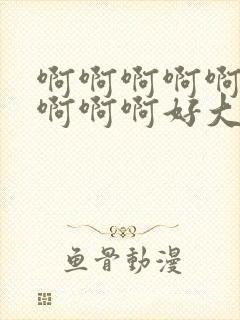 啊啊啊啊啊
啊啊啊好大
鱼骨動漫